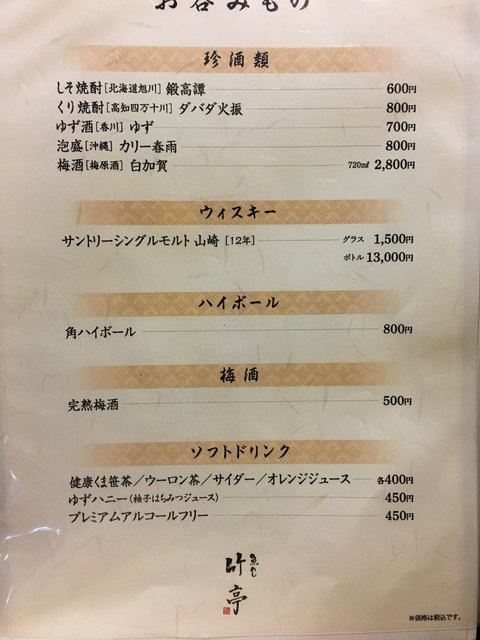 お呑みもの
珍酒類
しそ焼酎[北海道旭川] 鍛高譚 600円
くり焼酎[高知四万十川] ダバダ火振 800円
ゆず酒[香川] ゆず 700円
泡盛[沖縄] カリー春雨 800円
梅酒[梅原酒] 白加賀 720㎖ 2,800円
ウィスキー
サントリーシングルモルト 山崎 [12年] グラス 1,500円
ボトル 13,000円
ハイボール
角ハイボール 800円
梅酒
完熟梅酒 500円
ソフトドリンク
健康くま笹茶／ウーロン茶／サイダー／オレンジジュース 各400円
ゆずハニー（柚子はちみつジュース） 450円
プレミアムアルコールフリー 450円
竹亭
※価格は税込です。